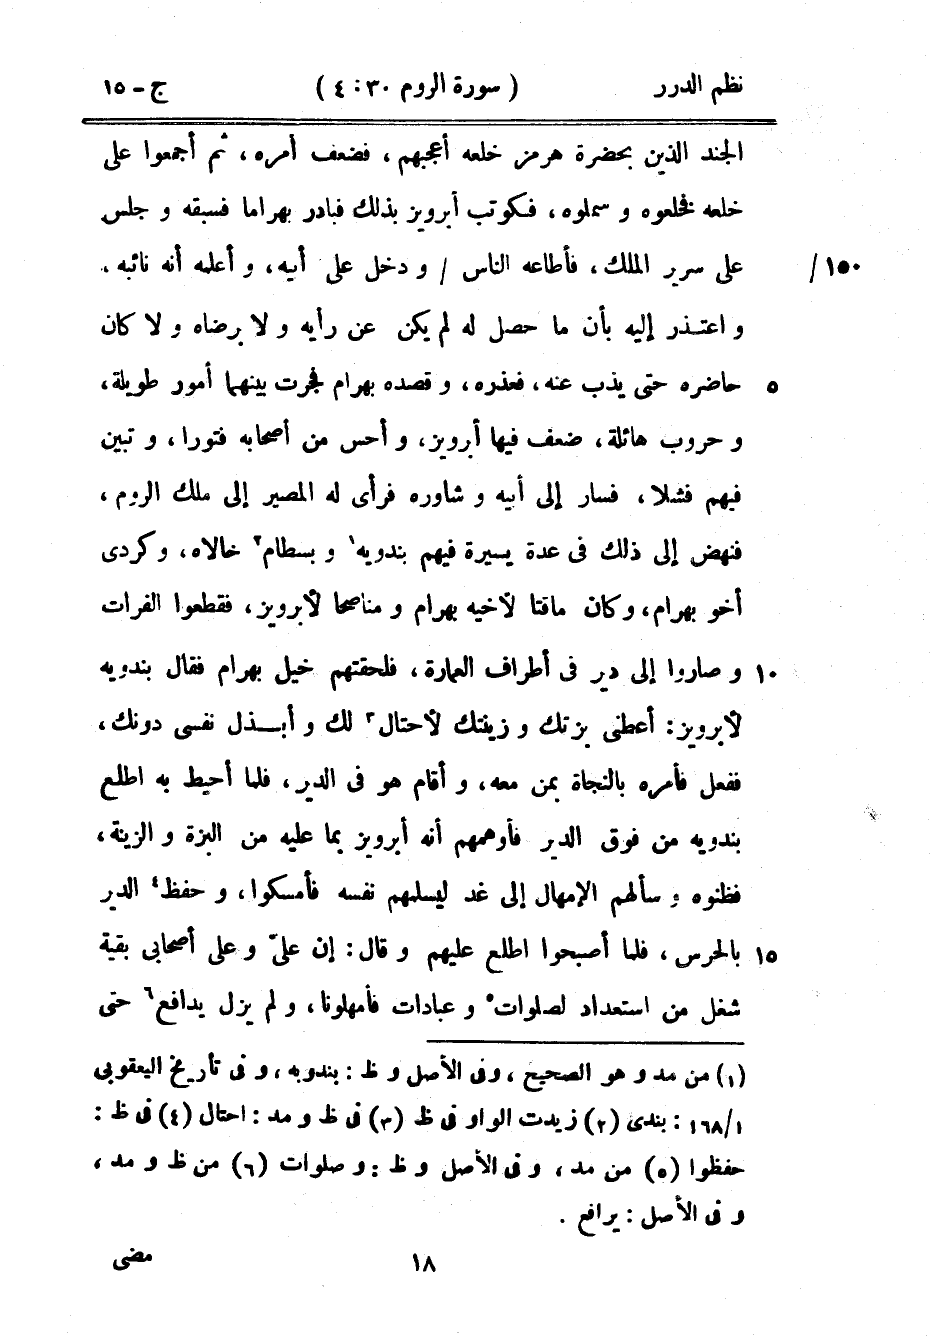 نظم الدرر ( سورة الروم ٣٠ : ٤ ) ج - ١٥
الجند الذين بحضرة هرمز خلعه أعجبهم ، فضعف أمره ، ثم أجمعوا على
خلعه فخلعوه و سملوه ، فكوتب أبرويز بذلك فبادر بهراما فسبقه و جلس
على سرير الملك ، فأطاعه الناس / و دخل على أبيه ، و أعلمه أنه نائبه ، ١٥٠/
و اعتذر إليه بأن ما حصل له لم يكن عن رأيه و لا برضاه و لا كان
٥ حاضره حتى يذب عنه ، فعذره ، و قصده بهرام فجرت بينهما أمور طويلة ،
و حروب هائلة ، ضعف فيها أبرويز ، و أحس من أصحابه فتورا ، و تبين
فيهم فشلا ، فسار إلى أبيه و شاوره فرأى له المصير إلى ملك الروم ،
فنهض إلى ذلك فى عدة يسيرة فيهم بندويه١ و بسطام٢ خالاه ، و كردى
أخو بهرام ، و كان ماقتا لأخيه بهرام و مناصحا لأبرويز ، فقطعوا الفرات
١٠ و صاروا إلى دير فى أطراف العمارة ، فلحقتهم خيل بهرام فقال بندويه
لأبرويز : أعطنى بزتك و زينتك لأحتال٣ لك و أبذل نفسى دونك ،
ففعل فأمره بالنجاة بمن معه ، و أقام هو فى الدير ، فلما أحيط به اطلع
بندويه من فوق الدير فأوهمهم أنه أبرويز بما عليه من البزة و الزينة ،
فظنوه و سألهم الإمهال إلى غد ليسلمهم نفسه فأمسكوا ، و حفظ٤ الدير
١٥ بالحرس ، فلما أصبحوا اطلع عليهم و قال : إن علىّ و على أصحابى بقية
شغل من استعداد لصلوات٥ و عبادات فأمهلونا ، و لم يزل يدافع٦ حتى
(١) من مد و هو الصحيح ، وفى الأصل و ظ : بندوبه ، و فى تأريخ اليعقوبى
١٦٨/١ : بندى (٢) زيدت الواو فى ظ (٣) فى ظ و مد : احتال (٤) فى ظ :
حفظوا (٥) من مد ، و فى الأصل و ظ : و صلوات (٦) من ظ و مد ،
و فى الأصل : يرافع .
١٨ مضى